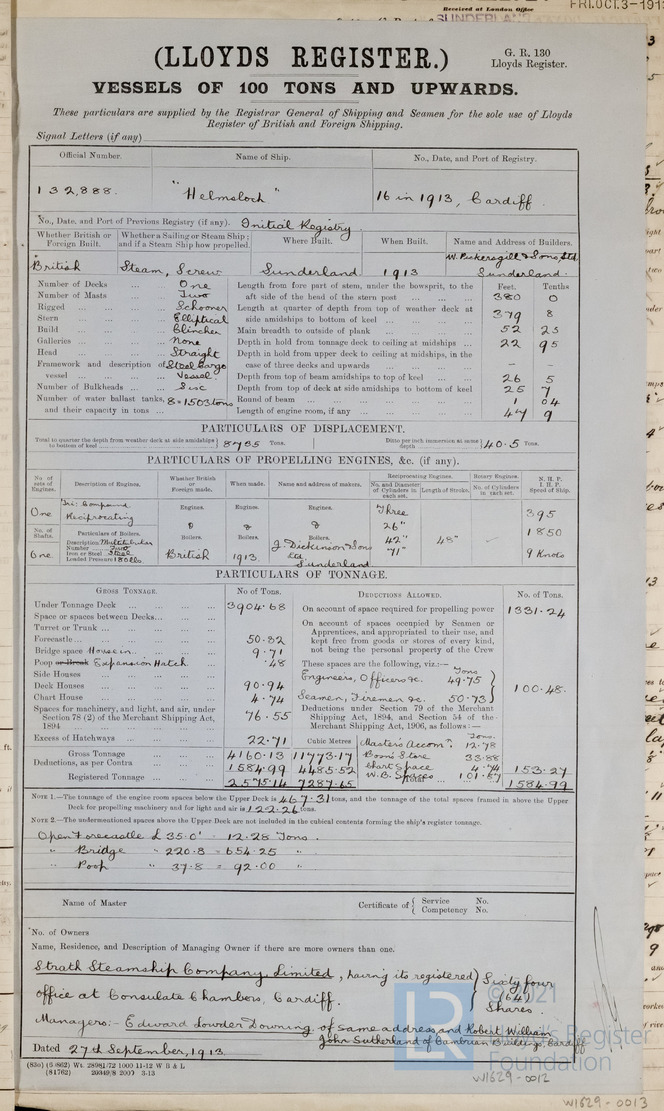 Received at London Office
FRI.OCT.3-1913
SUNDERLAND
(LLOYDS REGISTER.)
G. R. 130
Lloyds Register.
VESSELS OF 100 TONS AND UPWARDS.
These particulars are supplied by the Registrar General of Shipping and Seamen for the sole use of Lloyds
Register of British and Foreign Shipping.
Signal Letters (if any)
Official Number. Name of Ship. No., Date, and Port of Registry.
132,888. "Helmsloch" 16 in 1913, Cardiff.
No., Date, and Port of Previous Registry (if any). Initial Registry
Whether British or Foreign Built. Whether a Sailing or Steam Ship; and if a Steam Ship how propelled. Where Built. When Built. Name and Address of Builders.
British Steam, Screw Sunderland 1913 W. Pickersgill & Sons, Ltd Sunderland.
Number of Decks One
Number of Masts Two
Rigged Schooner
Stern Elliptical
Build Clincher
Galleries None
Head Straight
Framework and description of vessel Steel Cargo Vessel
Number of Bulkheads Six
Number of water ballast tanks, and their capacity in tons 8=1503 tons
Feet. Tenths
Length from fore part of stem, under the bowsprit, to the aft side of the head of the stern post 380 0
Length at quarter of depth from top of weather deck at side amidships to bottom of keel 379 8
Main breadth to outside of plank 52 25
Depth in hold from tonnage deck to ceiling at midships 22 95
Depth in hold from upper deck to ceiling at midships, in the case of three decks and upwards - -
Depth from top of beam amidships to top of keel 26 5
Depth from top of deck at side amidships to bottom of keel 25 7
Round of beam 1 04
Length of engine room, if any 47 9
PARTICULARS OF DISPLACEMENT.
Total to quarter the depth from weather deck at side amidships to bottom of keel 8735 Tons. Ditto per inch immersion at same depth 40.5 Tons.
PARTICULARS OF PROPELLING ENGINES, &c. (if any).
No. of sets of Engines. Description of Engines. Whether British or Foreign made. When made. Name and address of makers. Reciprocating Engines. Rotary Engines. N.H.P. I.H.P. Speed of Ship.
No. and Diameter of Cylinders in each set. Length of Stroke. No. of Cylinders in each set.
One Tri: Compound Reciprocating Engines. Engines. Engines. Three 26" 42" 71" 48" 395 1850 9 Knots
No. of Shafts. Particulars of Boilers. Boilers. Boilers. Boilers.
One Description Multitubular Number Two Iron or Steel Steel Loaded Pressure 180 lbs. British 1913 J. Dickinson & Sons Ltd. Sunderland
PARTICULARS OF TONNAGE.
GROSS TONNAGE. No. of Tons. DEDUCTIONS ALLOWED. No. of Tons.
Under Tonnage Deck 3904.68
Space or spaces between Decks
Turret or Trunk
Forecastle 50.82
Bridge space House in 9.71
Poop or Break Expansion Hatch .48
Side Houses
Deck Houses 90.94
Chart House 4.74
Spaces for machinery, and light, and air, under Section 78 (2) of the Merchant Shipping Act, 1894 76.55
Excess of Hatchways 22.71 Cubic Metres
Gross Tonnage 4160.13 11773.17
Deductions, as per Contra 1584.99 4485.52
Registered Tonnage 2575.14 7287.65
On account of space required for propelling power 1331.24
On account of spaces occupied by Seamen or Apprentices, and appropriated to their use, and kept free from goods or stores of every kind, not being the personal property of the Crew
These spaces are the following, viz.:— Tons
Engineers, Officers &c. 49.75
Seamen, Firemen &c. 50.73 100.48.
Deductions under Section 79 of the Merchant Shipping Act, 1894, and Section 54 of the Merchant Shipping Act, 1906, as follows:— Tons.
Masters Accomn. 12.78
Bosn's Store 33.88
Chart Space 4.74
W.B. Spaces 101.87 153.27
Total 1584.99
NOTE 1.—The tonnage of the engine room spaces below the Upper Deck is 467.31 tons, and the tonnage of the total spaces framed in above the Upper
Deck for propelling machinery and for light and air is 122.26 tons.
NOTE 2.—The undermentioned spaces above the Upper Deck are not included in the cubical contents forming the ship's register tonnage.
Open Forecastle 35.0' = 12.28 Tons.
" Bridge " 220.8 = 654.25 "
" Poop " 37.8 = 92.00 "
Name of Master Certificate of { Service No. Competency No.
No. of Owners
Name, Residence, and Description of Managing Owner if there are more owners than one.
Strath Steamship Company, Limited, having its registered Sixty four
office at Consulate Chambers, Cardiff. (64)
Shares.
Managers:- Edward Lowder Downing of same address, and Robert William
John Sutherland of Cambrian Buildings, Cardiff
Dated 27th September, 1913
(83o) (6 862) Wt. 28981/72 1000 11-12 W B & L
(81762) 20349/8 2000 3-13
LR
© 2021
Lloyd's Register
Foundation
W1629-0012
W1629-0013